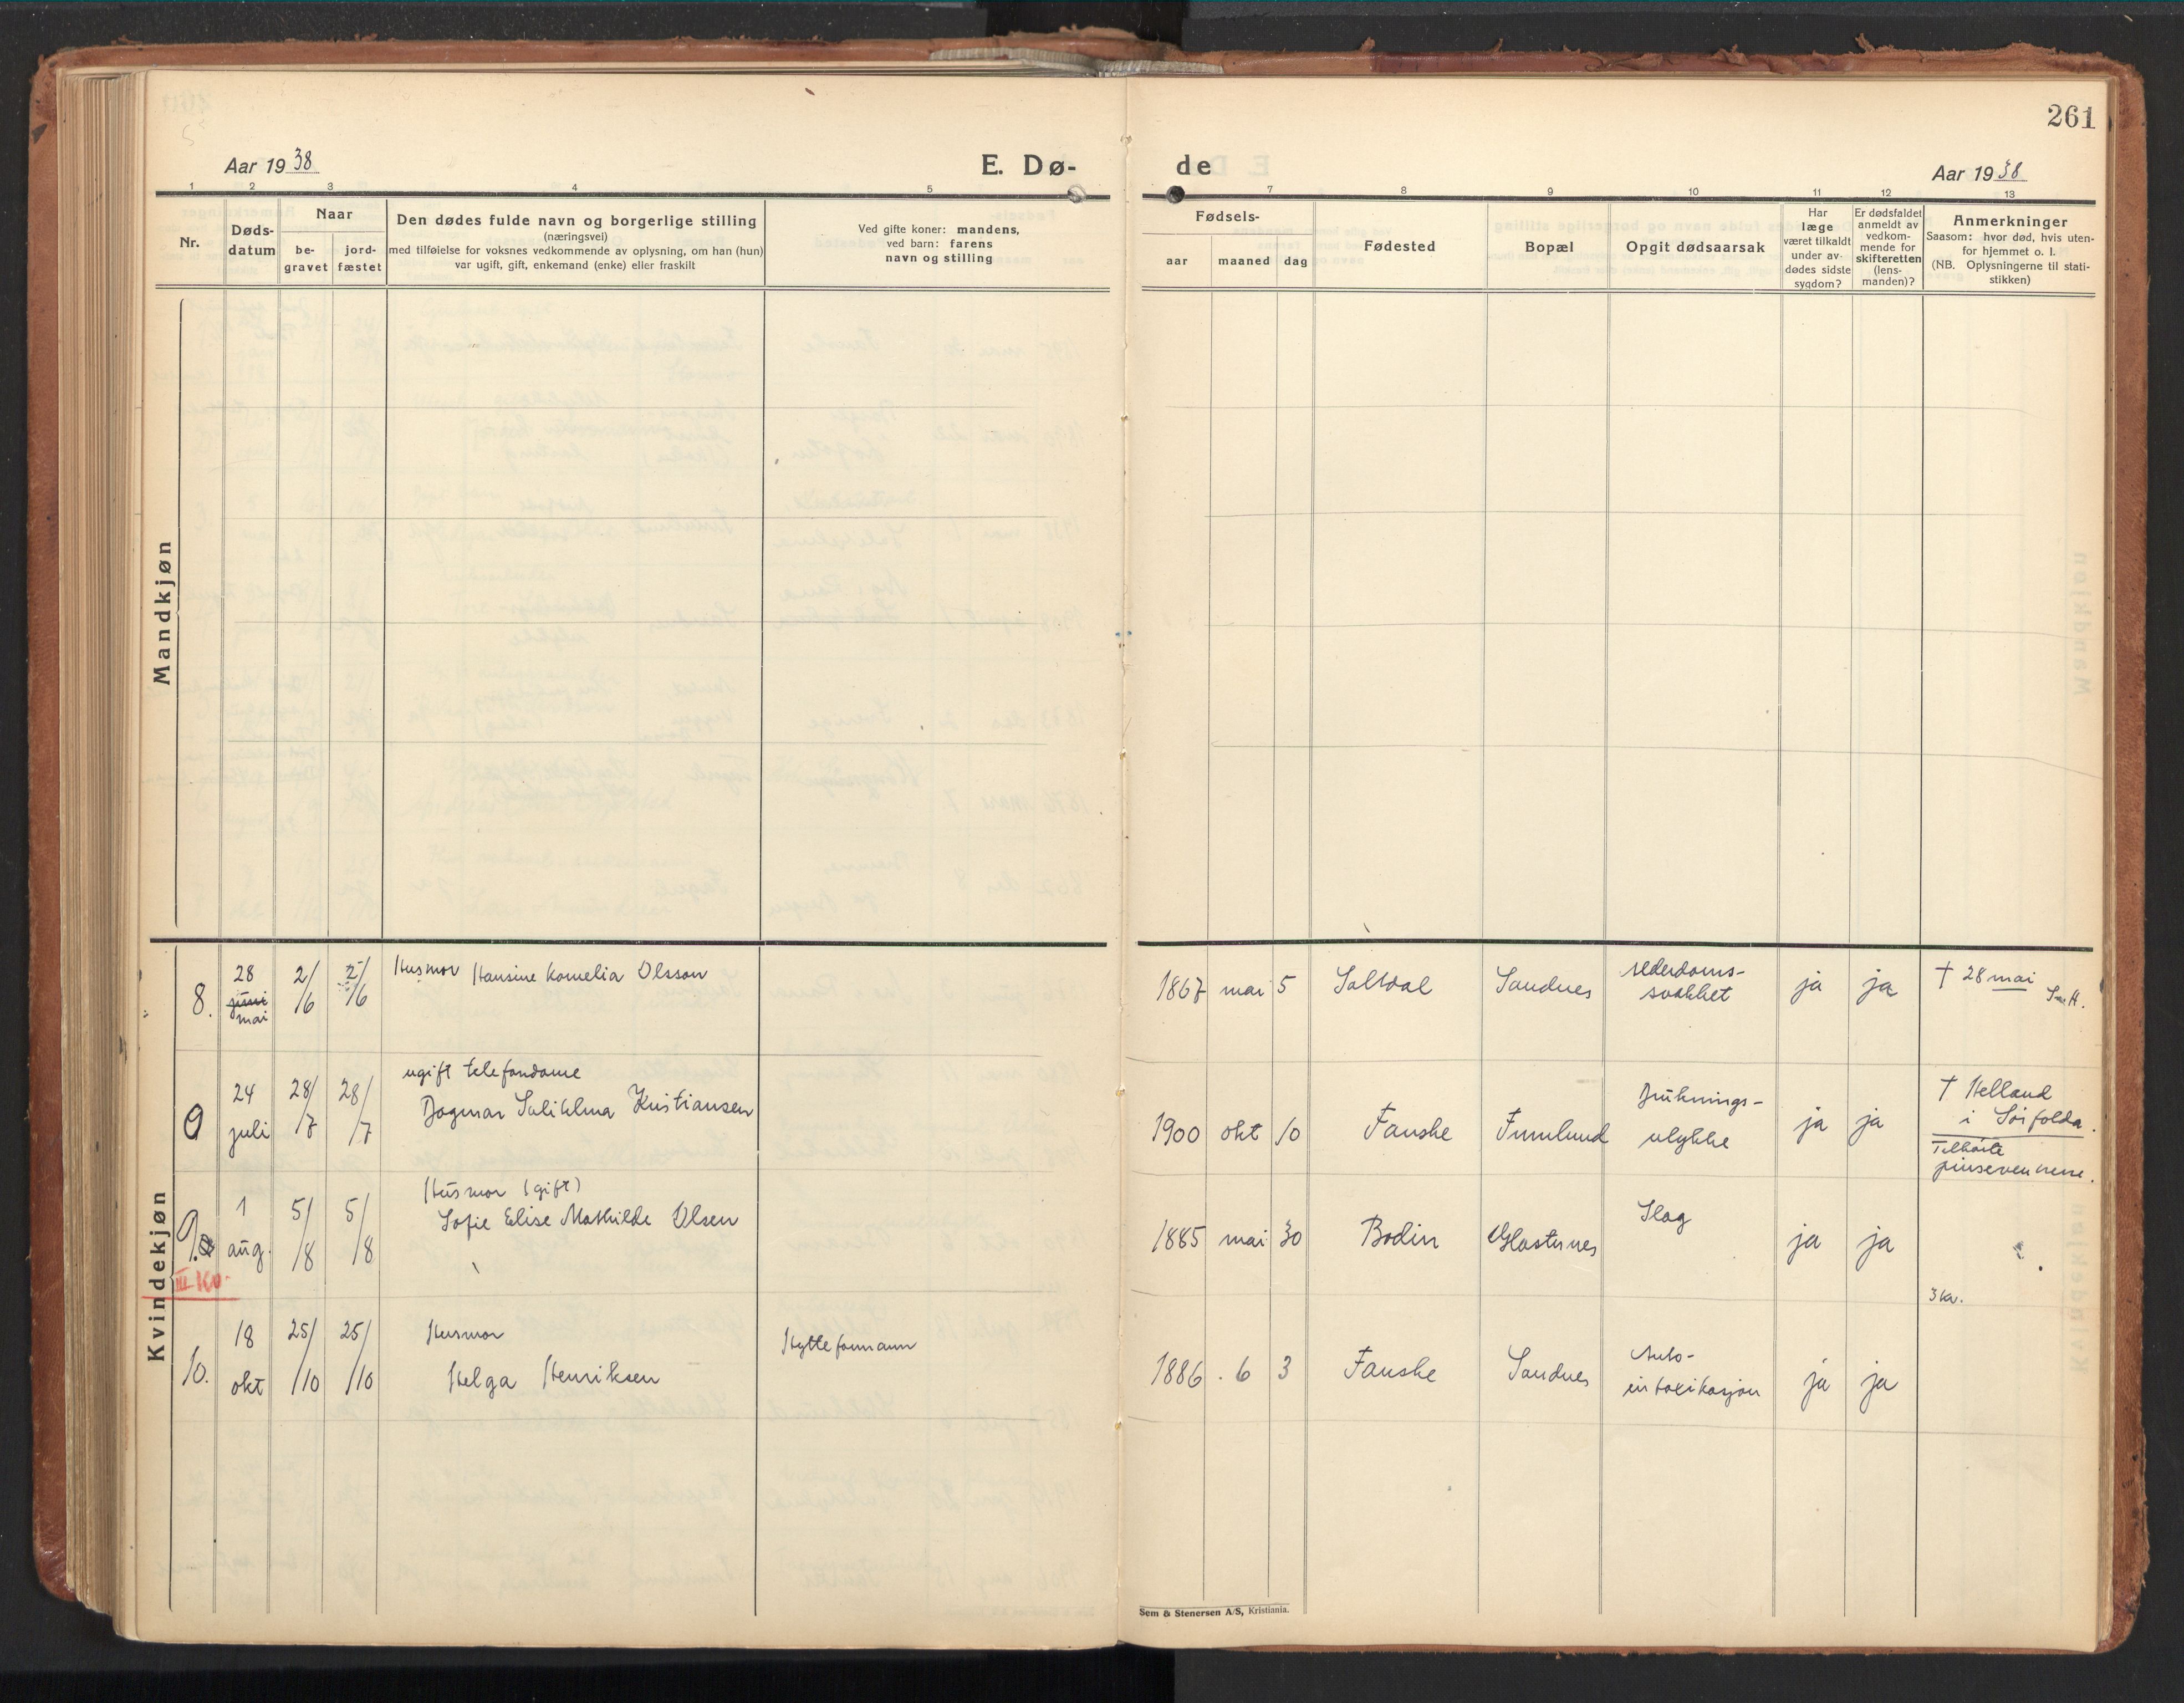 261
Aar 1938
E. Dø-
de
Aar 1938
1 2 3 4 5 7 8 9 10 11 12 13
Nr.
Døds-
datum
Naar
be-
gravet
jord-
fæstet
Den dødes fulde navn og borgerlige stilling
(næringsvei)
med tilføielse for voksnes vedkommende av oplysning, om han (hun)
var ugift, gift, enkemand (enke) eller fraskilt
Ved gifte koner: mandens,
ved barn: farens
navn og stilling
Fødsels-
aar maaned dag
Fødested
Bopæl
Opgit dødsaarsak
Har
læge
været tilkaldt
under av-
dødes sidste
sygdom?
Er dødsfaldet
anmeldt av
vedkom-
mende for
skifteretten
(lens-
manden)?
Anmerkninger
Saasom: hvor død, hvis uten-
for hjemmet o. l.
(NB. Oplysningerne til stati-
stikken)
Mandkjøn
Kvindekjøn
8. 28 juni mai 2/6 2/6 Husmor Hansine Kornelia Olsson 1867 mai 5 Saltdal Sandnes alderdoms-
svakhet ja ja † 28 mai
9 24 juli 28/7 28/7 ugift telefondame
Dagmar Kristiansen 1900 okt 10 Fauske Furulund Druknings-
ulykke ja ja † Helland
i Sørfolda.
Tilhørte
pinsevennene.
9. 1 aug. 5/8 5/8 Husmor (gift)
Sofie Elise Mathilde Olsen 1885 mai 30 Bodin Glastunes Slag ja ja
III Kv.
3 kv.
10. 18 okt 25/10 25/10 Husmor
Helga Henriksen Hytteformann 1886 . 6 3 Fauske Sandnes Auto-
intoxikasjon ja ja
Sem & Stenersen A/S, Kristiania.